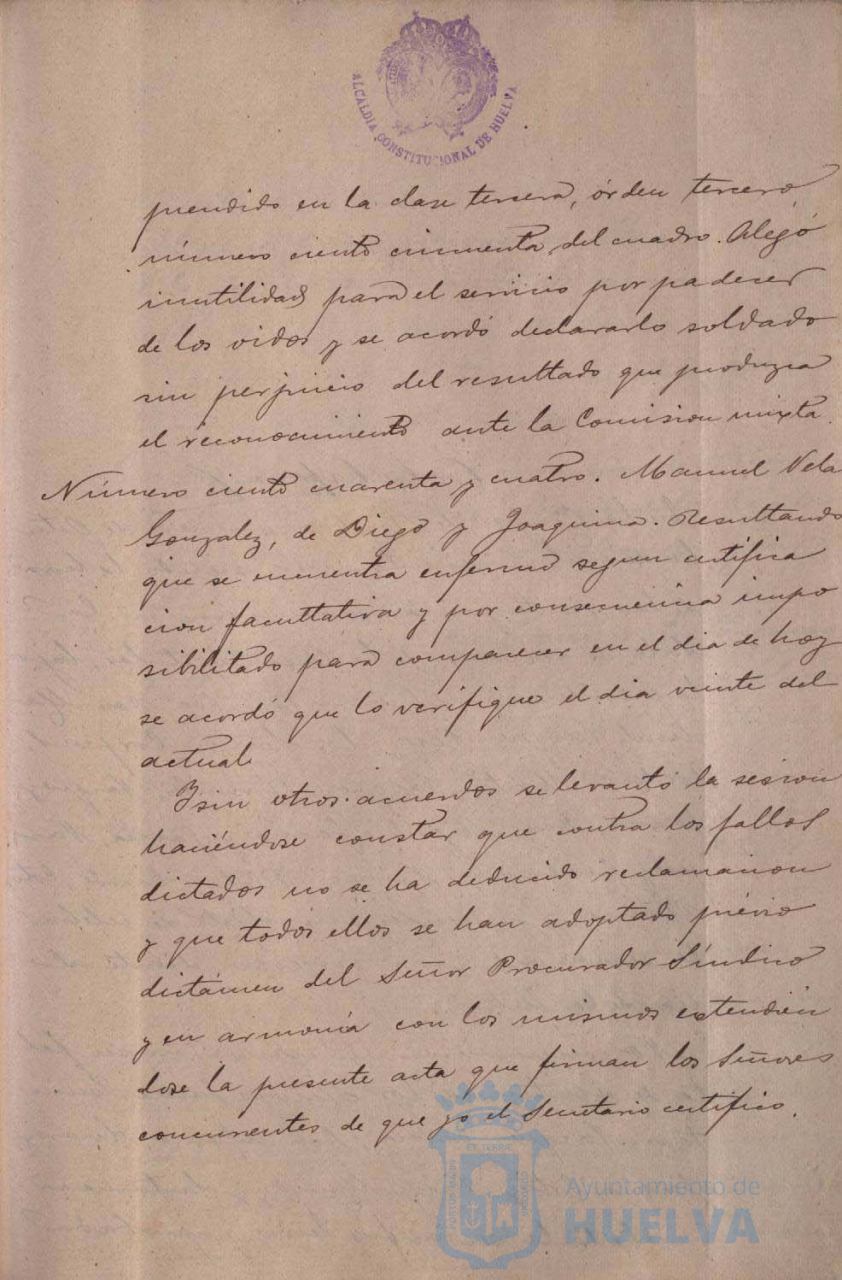 ALCALDIA CONSTITUCIONAL DE HUELVA
prendido en la clase tercera, órden tercero,
número ciento cincuenta del cuadro. Alegó
inutilidad para el servicio por padecer
de los oidos y se acordó declararlo soldado
sin perjuicio del resultado que produzca
el reconocimiento ante la Comision mixta.
Número ciento cuarenta y cuatro. Manuel Vela
Gonzalez, de Diego y Joaquina. Resultando
que se encuentra enfermo segun certifica
cion facultativa y por consecuencia impo
sibilitado para comparecer en el dia de hoy
se acordó que lo verifique el dia veinte del
actual
Y sin otros acuerdos se levantó la sesion
haciéndose constar que contra los fallos
dictados no se ha deducido reclamacion
y que todos ellos se han adoptado prévio
dictámen del Señor Procurador Síndico
y en armonía con los mismos extendién
dose la presente acta que firman los Señores
concurrentes de que yo el Secretario certifico.
Ayuntamiento de
HUELVA